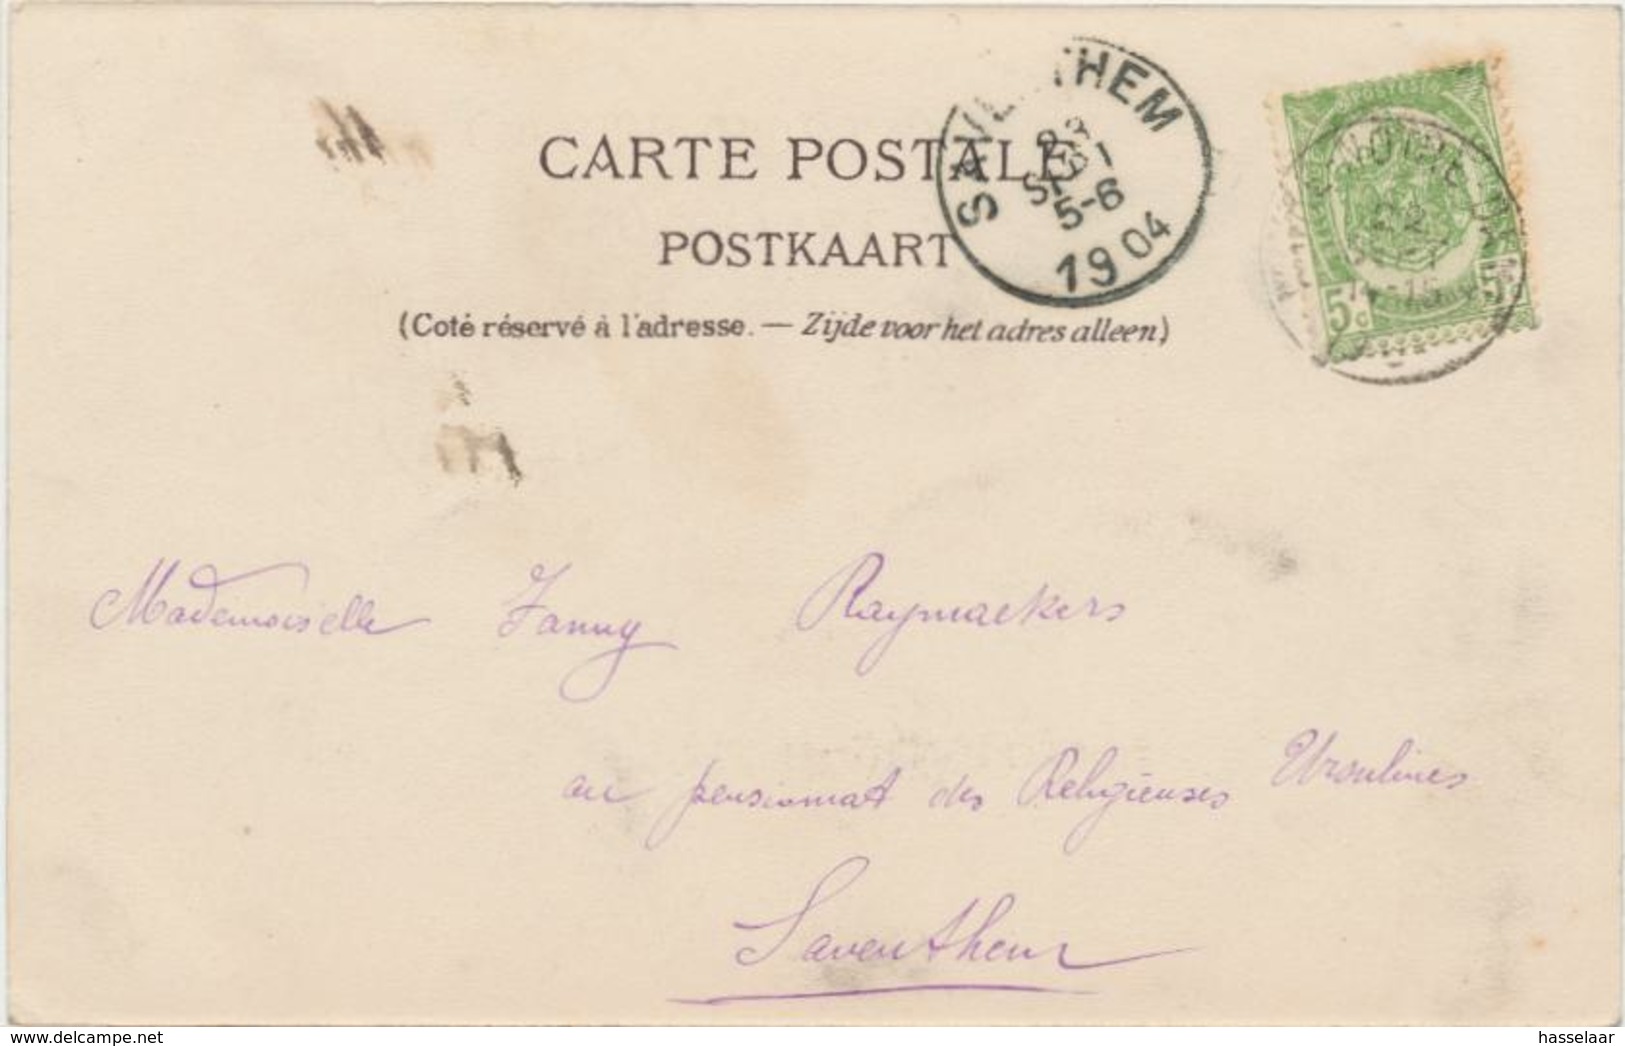 CARTE POSTALE
POSTKAART
(Coté réservé à l'adresse. — Zijde voor het adres alleen)
THEM
5-6
1904
5c
5
Mademoiselle Fanny Raymaekers
au pensionnat des Religieuses Ursulines
Saventhem
www.delcampe.net
hasselaar